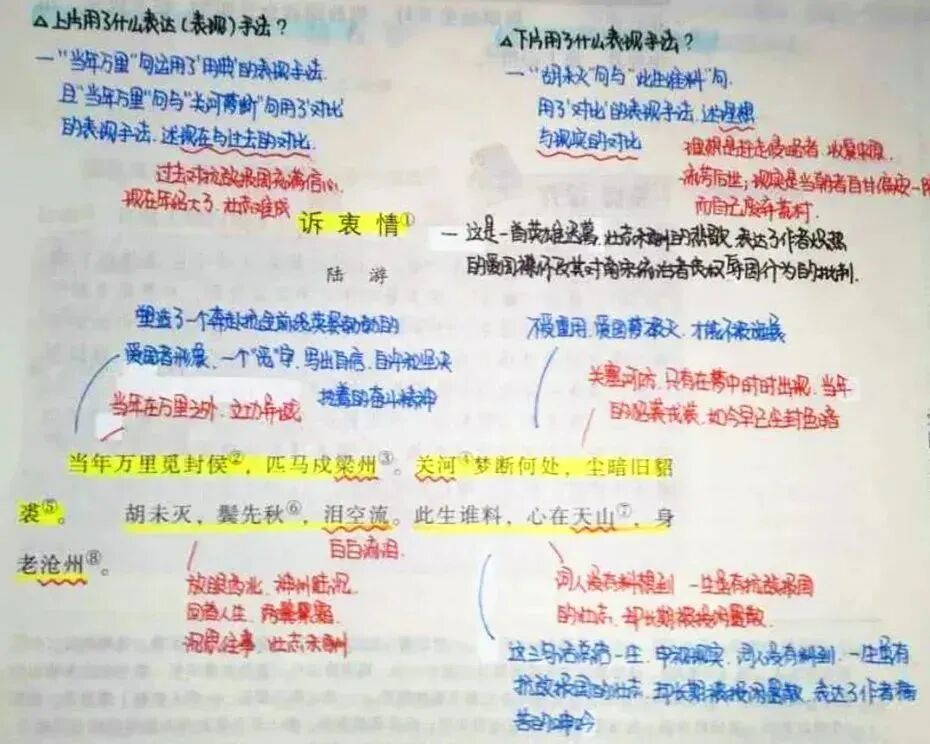 △上片用了什么表达(表现)手法?
一"当年万里"句运用了'用典'的表现手法.
且"当年万里"句与"关河梦断"句用了'对比
的表现手法.述现在与过去的对比.
过去对抗敌报国充满信心.
现在年纪大了.壮志难成
△下片用了什么表现手法?
一"胡未灭"句与"此生谁料"句.
用了'对比'的表现手法.述理想
与现实的对比
理想是赶走侵略者.收复中原.
流芳后世;现实是当朝者自甘偏安一
而自己废弃荒村.
诉衷情①
陆游
一这是一首英雄迟暮,壮志未酬的悲歌.表达了作者炽热
的爱国情怀及其对南宋统治者丧权辱国行为的批判.
塑造了一个奔赴抗金前线英勇的
爱国者形象.一个"觅"字.写出自信.自许和坚决
执着的奋斗精神
当年在万里之外.立功
不受重用.爱国梦破灭.才能不被施展
关塞河防.只有在梦中时时出现.当年
的貂裘戎装.如今早已尘封色暗
当年万里觅封侯②,匹马戍梁州③。关河④梦断何处,尘暗旧貂
裘⑤。 胡未灭,鬓先秋⑥,泪空流。此生谁料,心在天山⑦,身
老沧州⑧。
白白流泪.
放眼西北.神州陆沉.
回首人生.两鬓
沉思往事.壮志未酬
词人没有料想到 一生虽有抗敌报国
的壮志.却长期被投闲置散.
这三句话 一生.现实.词人没有料到.一生虽有
抗敌报国的壮志.却长期被投闲置散.表达了作者痛
苦的